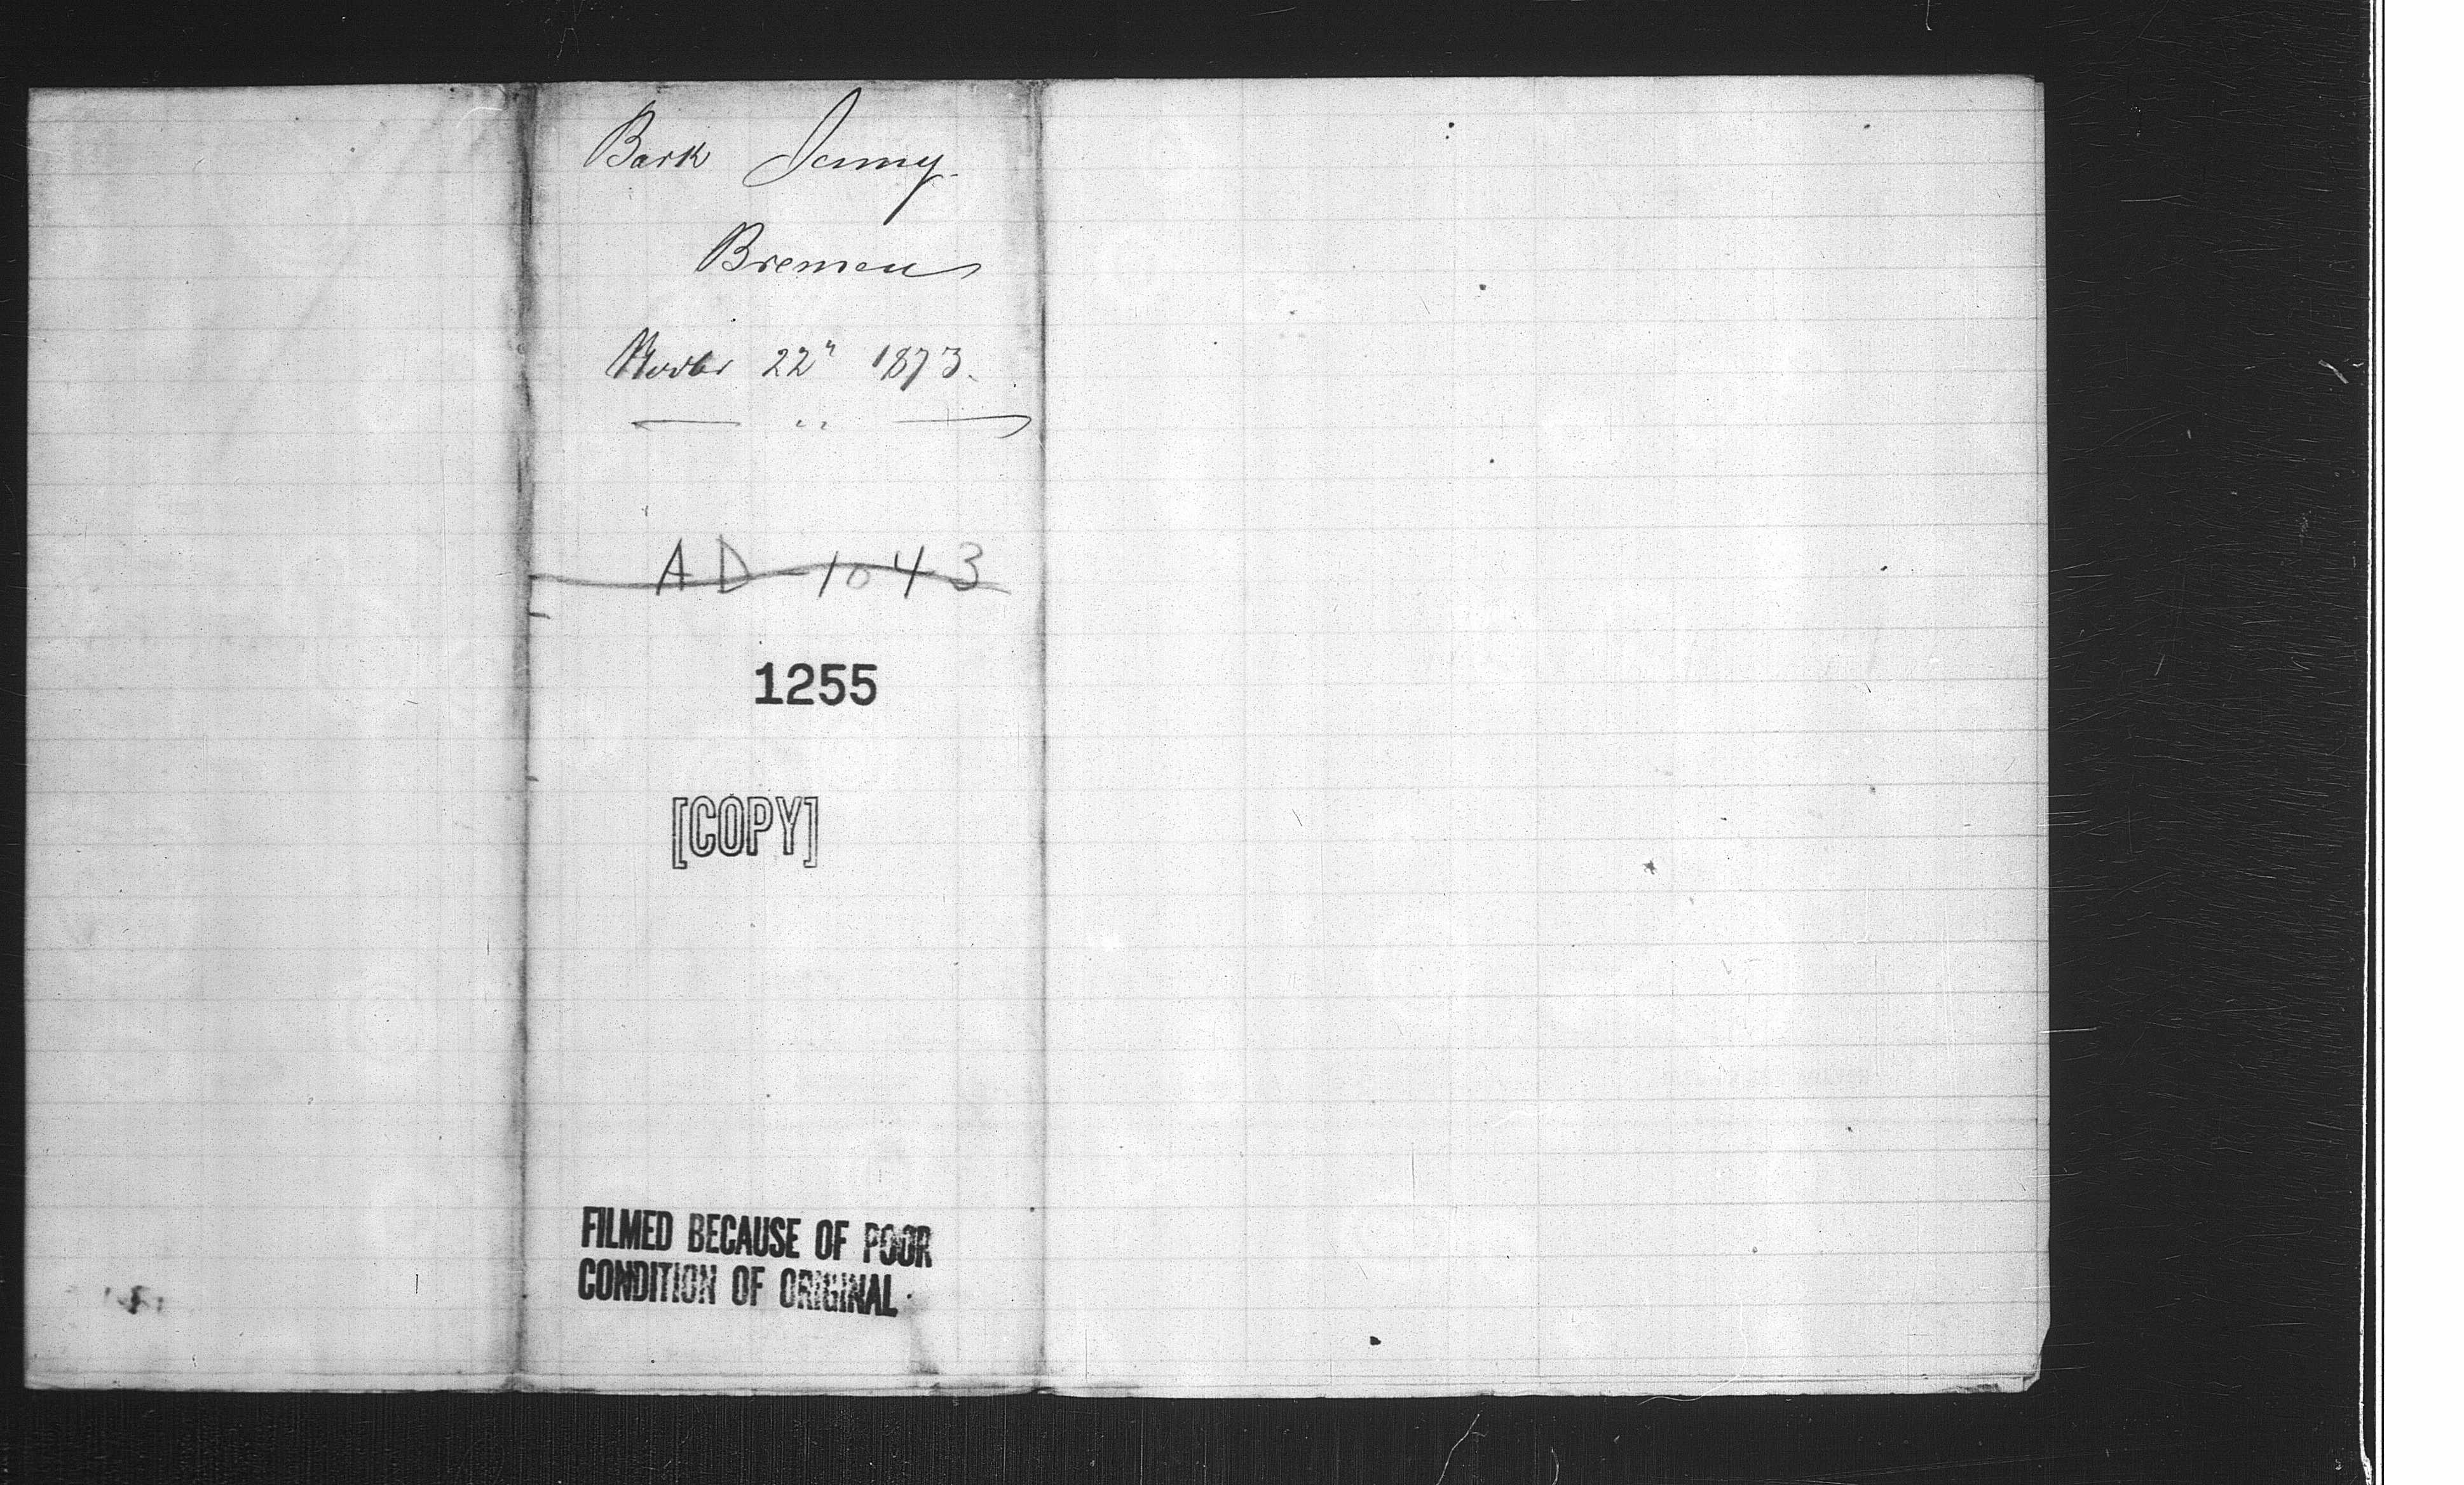 Bark Jenny.
Bremen
Novbr 22" 1873.
AD-1043
1255
[COPY]
FILMED BECAUSE OF POOR
CONDITION OF ORIGINAL